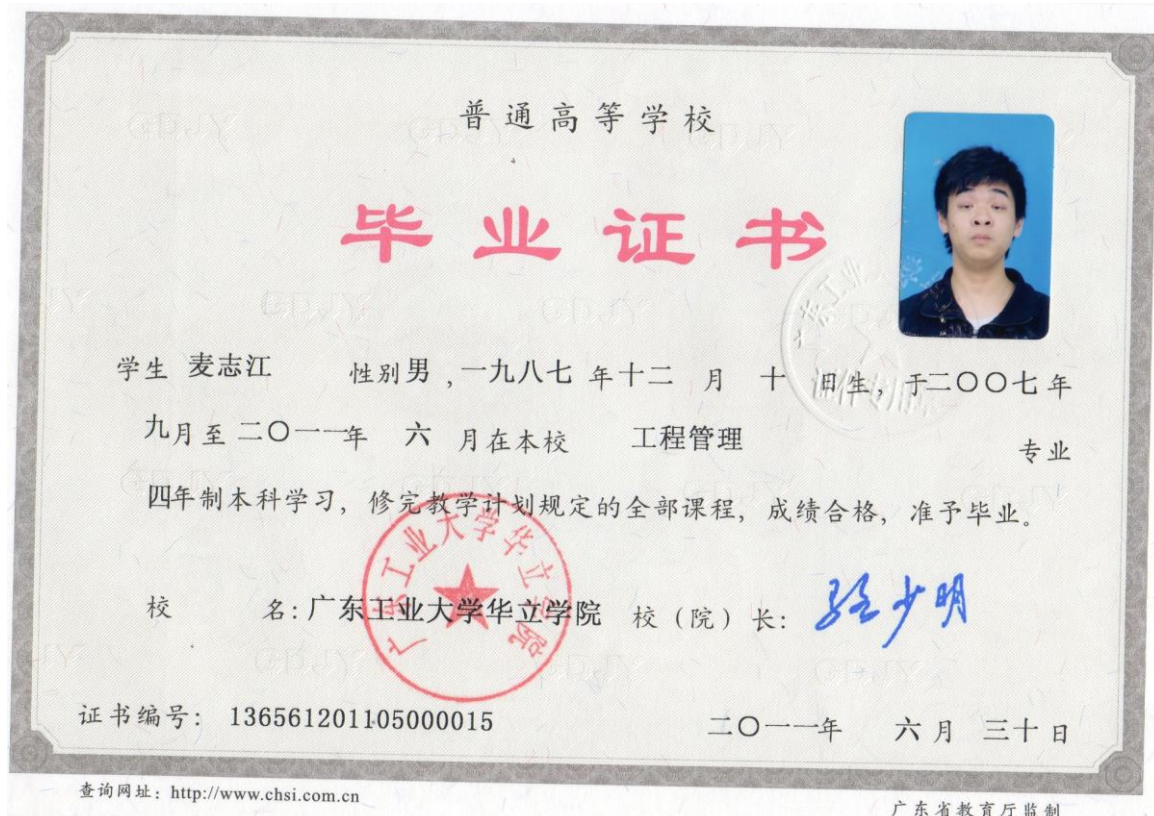 普通高等学校
毕业证书
学生 麦志江 性别男，一九八七 年十二 月 十 日生，于二〇〇七年
九月至二〇一一年 六 月在本校 工程管理 专业
四年制本科学习，修完教学计划规定的全部课程，成绩合格，准予毕业。
广东工业大学华立学院
校 名：广东工业大学华立学院 校（院）长：
证书编号： 136561201105000015 二〇一一年 六月 三十日
查询网址：http://www.chsi.com.cn
广东省教育厅监制